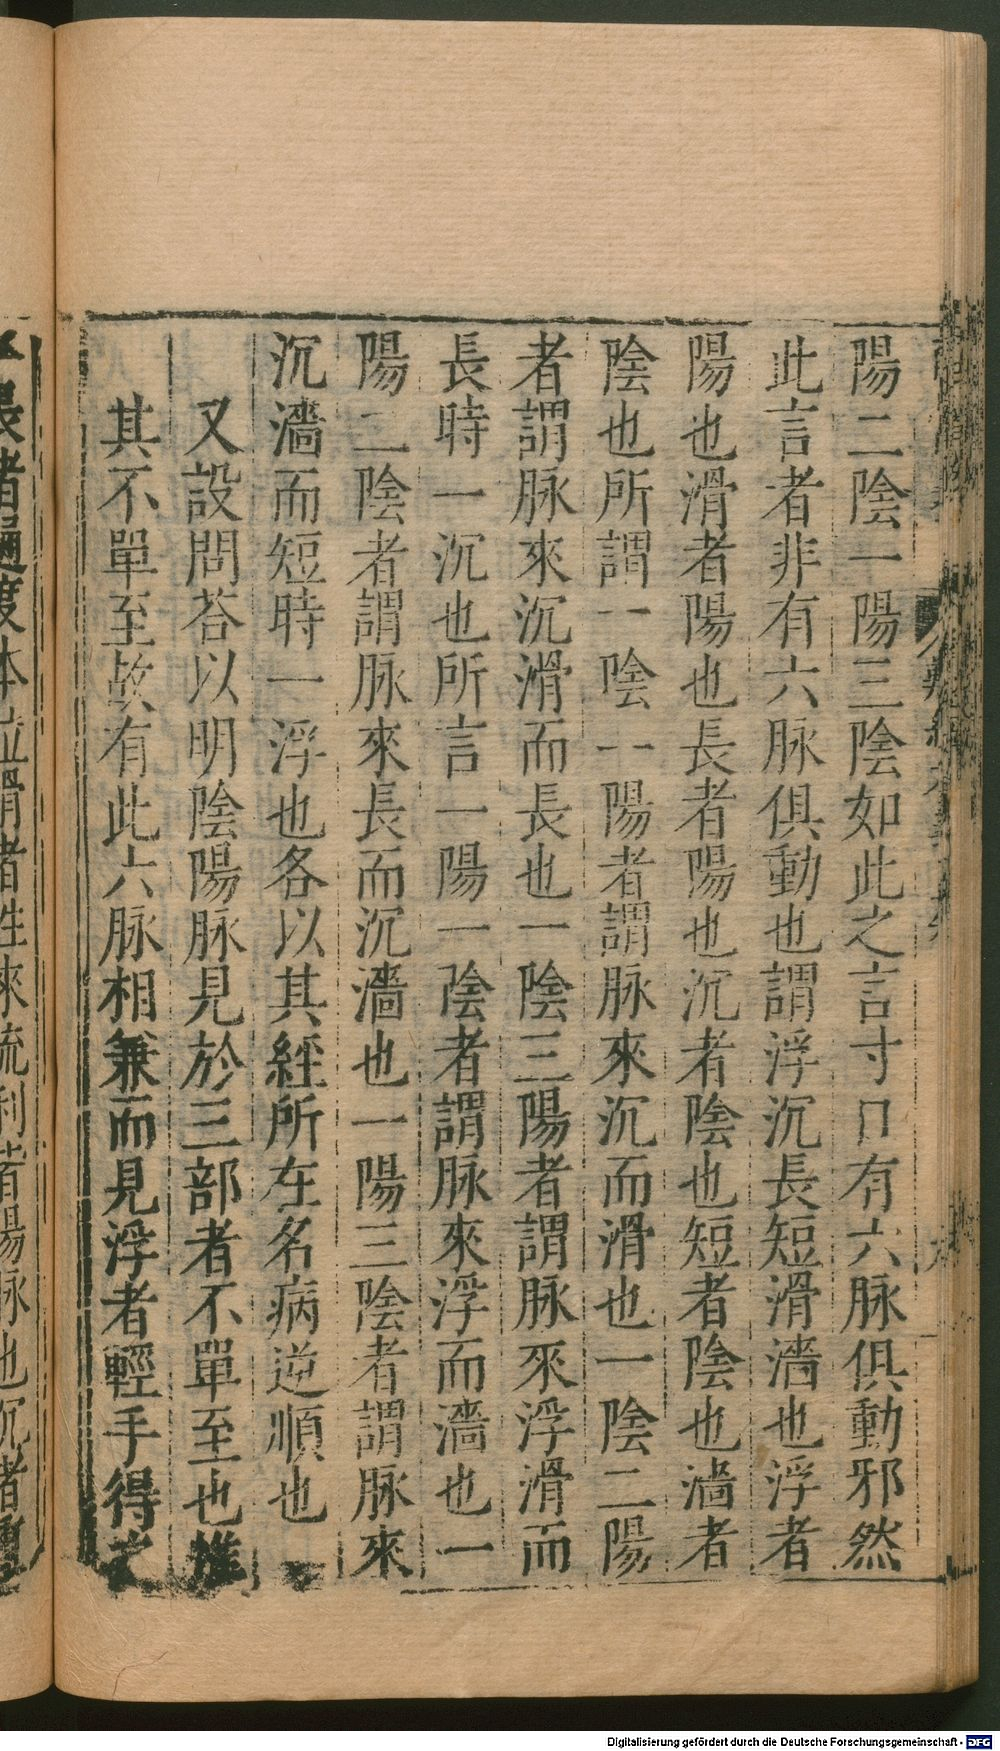 陽二陰一陽三陰如此之言寸口有六脉俱動邪然
此言者非有六脉俱動也謂浮沉長短滑濇也浮者
陽也滑者陽也長者陽也沉者陰也短者陰也濇者
陰也所謂一陰一陽者謂脉來沉而滑也一陰二陽
者謂脉來沉滑而長也一陰三陽者謂脉來浮滑而
長時一沉也所言一陽一陰者謂脉來浮而濇也一
陽二陰者謂脉來長而沉濇也一陽三陰者謂脉來
沉濇而短時一浮也各以其經所在名病逆順也
又設問荅以明陰陽脉見於三部者不單至也惟
其不單至故有此六脉相兼而見浮者輕手得之
長者過度本位滑者往來流利皆陽脉也沉者重
Digitalisierung gefördert durch die Deutsche Forschungsgemeinschaft - DFG